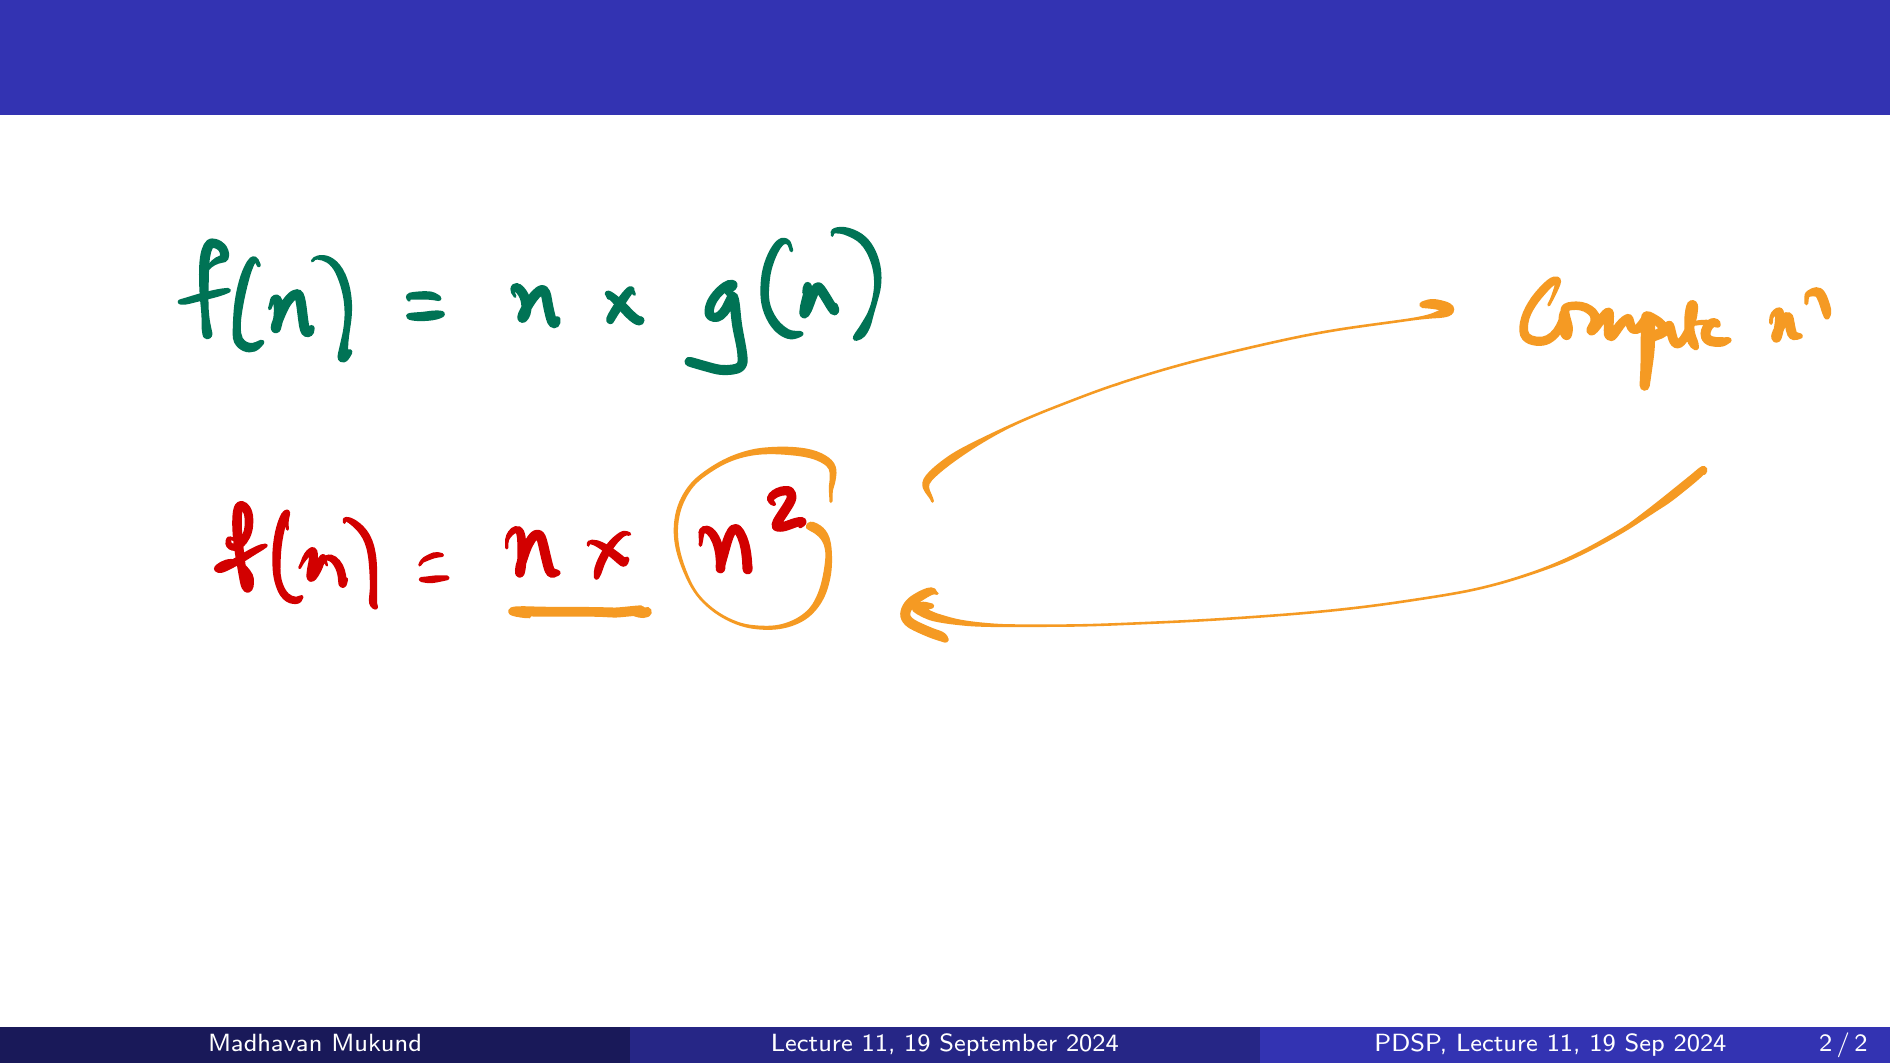 f(n) = n × g(n)
Compute n
f(n) = n × n²
Madhavan Mukund Lecture 11, 19 September 2024 PDSP, Lecture 11, 19 Sep 2024 2 / 2